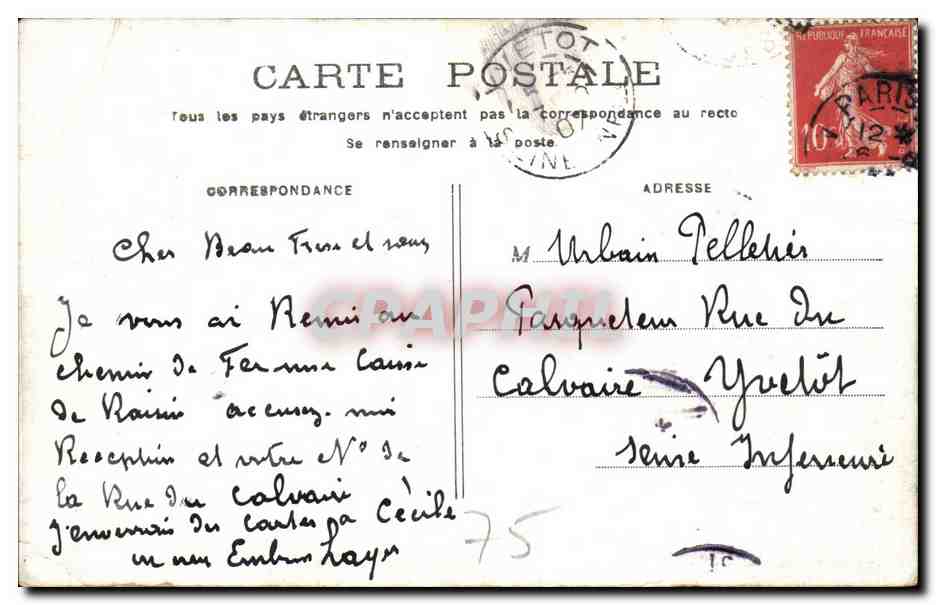 CARTE POSTALE
Tous les pays étrangers n'acceptent pas la correspondance au recto
Se renseigner à la poste.
CORRESPONDANCE
Cher Beau Frere et sœur
Je vous ai Remis au
chemin de Fer une Caisse
de Raisin accusez-moi
Reception et votre N° de
la Rue du Calvaire
J'enverrais des cartes a Cécile
ADRESSE
M Urbain Pelletier
Parqueteur Rue Du
Calvaire Yvetôt
Seine Inferieure
75
YVETOT
07
SEINE INF
REPUBLIQUE FRANÇAISE
10
PARIS
12
CPAPHIL